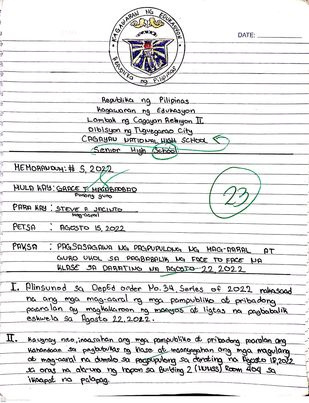 KAGAWARAN NG EDUKASYON
REPUBLIKA NG PILIPINAS
DATE:
Republika ng Pilipinas
Kagawaran ng Edukasyon
Lambak ng Cagayan Rehiyon II
Dibisyon ng Tuguegarao City
CAGAYAN NATIONAL HIGH SCHOOL
Senior High School
MEMORANDUM: # 5, 2022
23
MULA KAY: GRACE T.
Punong guro
PARA KAY: STEVE A. JACINTO
mag-aaral
PETSA : AGOSTO 15, 2022
PAKSA : PAGSASAGAWA NG PAGPUPULONG NG MAG-AARAL AT
GURO UKOL SA PAGBABALIK NG FACE TO FACE NA
KLASE SA DARATING NA AGOSTO 22, 2022
I. Alinsunod sa DepEd order No. 34, Series of 2022 nakasaad
na ang mga mag-aaral ng mga pampubliko at pribadong
paaralan ay magkakaroon ng maayos at ligtas na pagbabalik
eskwela sa Agosto 22, 2022.
II. Kaugnay nito, inaasahan ang mga pampubliko at pribadong paaralan ang
kahandaan sa pagbubukas ng klase at ang mga magulang
at mag-aaral na dumalo sa pagpupulong sa darating na Agosto 18, 2022
sa oras na ng hapon sa Building 2 Room 404 sa
ikaapat na palapag.